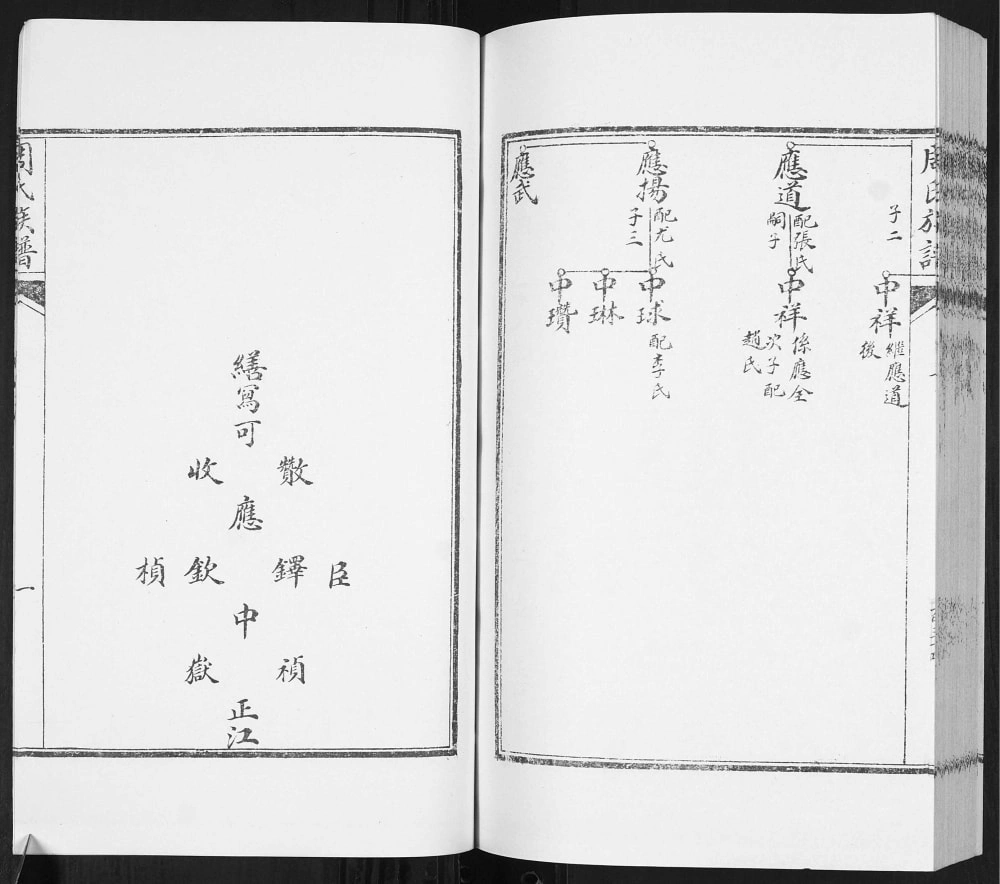 周氏族譜
子二
中祥
繼應道
後
應道
配張氏
嗣子
中祥
係應全
次子配
趙氏
應揚
配尤氏
子三
中球
配李氏
中琳
中瓚
應武
繕寫可
收
應
鐸
臣
欽
楨
中
禎
嶽
正江
周氏族譜
一